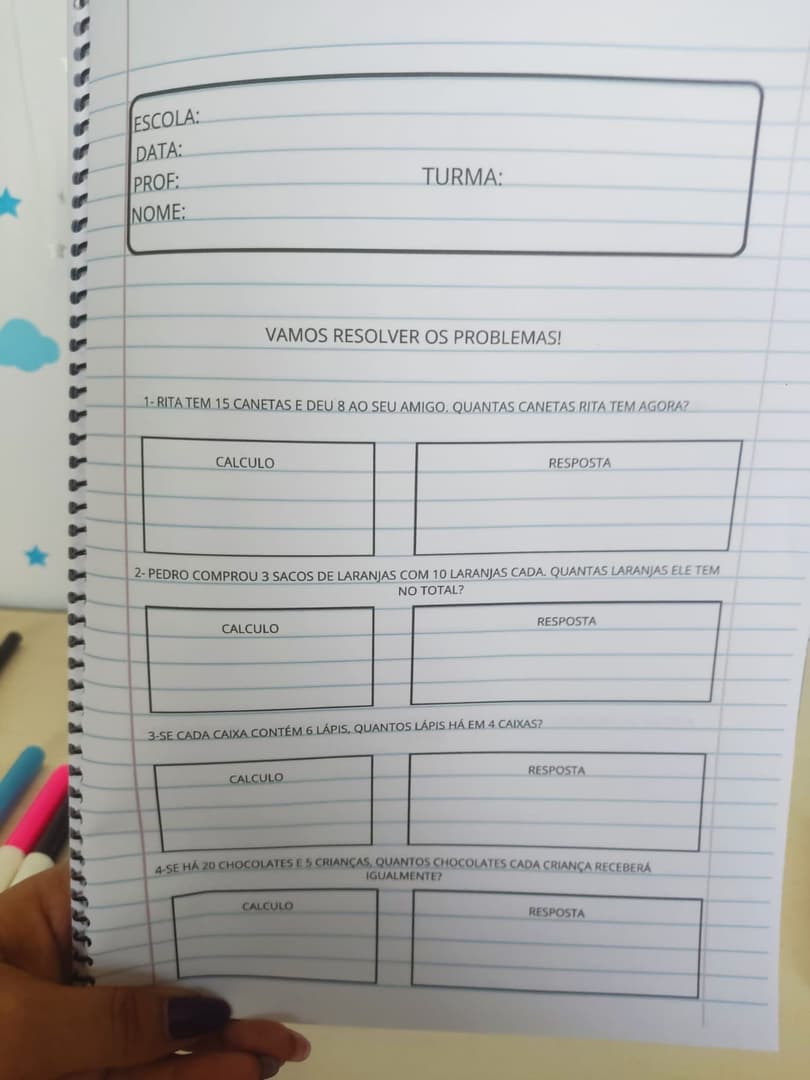 ESCOLA:
DATA:
PROF: TURMA:
NOME:
VAMOS RESOLVER OS PROBLEMAS!
1- RITA TEM 15 CANETAS E DEU 8 AO SEU AMIGO. QUANTAS CANETAS RITA TEM AGORA?
CALCULO RESPOSTA
2- PEDRO COMPROU 3 SACOS DE LARANJAS COM 10 LARANJAS CADA. QUANTAS LARANJAS ELE TEM
NO TOTAL?
CALCULO RESPOSTA
3-SE CADA CAIXA CONTÉM 6 LÁPIS, QUANTOS LÁPIS HÁ EM 4 CAIXAS?
CALCULO RESPOSTA
4-SE HÁ 20 CHOCOLATES E 5 CRIANÇAS, QUANTOS CHOCOLATES CADA CRIANÇA RECEBERÁ
IGUALMENTE?
CALCULO RESPOSTA